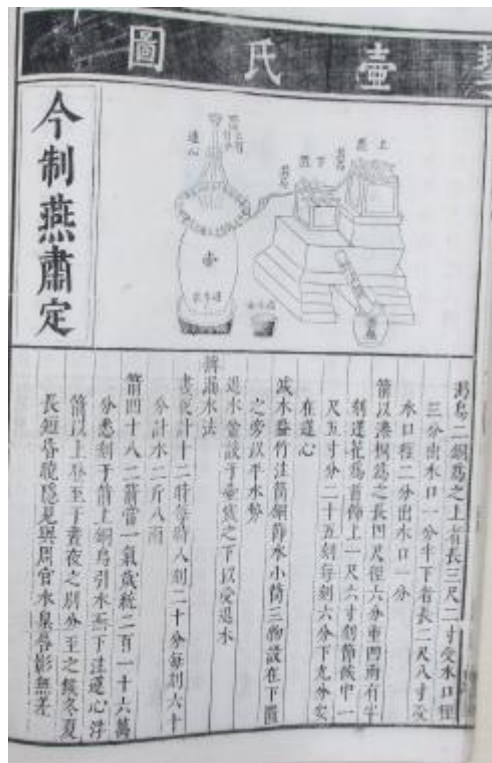 壺氏圖
今制燕肅定
上匱
下匱
渴烏
渴烏
蓮心
壺
渴烏二銅爲之上者長三尺二寸受水口徑
三分出水口一分半下者長二尺八寸受
水口徑二分出水口一分
箭以漆桐爲之長四尺徑六分重四兩有半
刻蓮花爲首飾上一尺六寸刻節候中一
尺五寸分二十五刻每刻六分下九分安
在蓮心
减水盎竹注筒銅節水小筒三物設在下匱
之旁以平水勢
退水盆設于壺甃之下以受退水
辨漏水法
晝夜計十二時每時八刻二十分每刻六十
分計水二斤八兩
箭四十八二箭當一氣歲統二百一十六萬
分悉刻于箭上銅烏引水而下注蓮心浮
箭以上登至于晝夜之別分至之候冬夏
長短昏曉隱見與周官水臬晷影無差